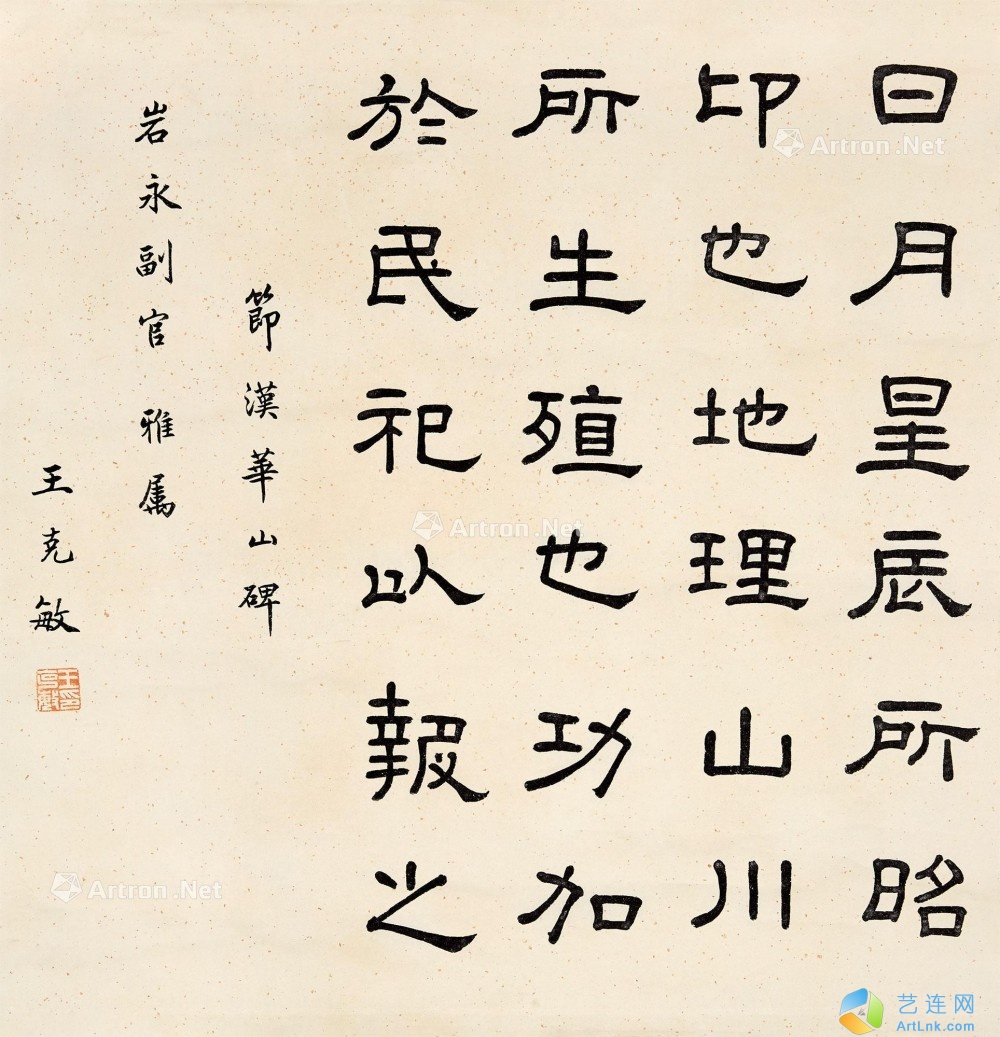 日月星辰所昭
卬也地理山川
所生殖也功加
於民祀以報之
節漢華山碑
岩永副官 雅属
王克敏
王印克敏
Artron.Net
Artron.Net
Artron.Net
艺连网
ArtLnk.com